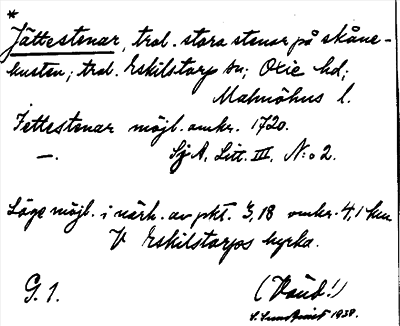 *
Jättestenar, trol. stora stenar på skåne-
kusten; trol. Eskilstorp sn; Oxie hd;
Malmöhus l.
Jettestenar möjl. omkr. 1720.
—. Sj A. Litt. III. N:o 2.
Läge möjl. i närh. av pkt. 3,18 omkr. 4,1 km
V Eskilstorps kyrka.
G. 1. (Vånd!)
1938.